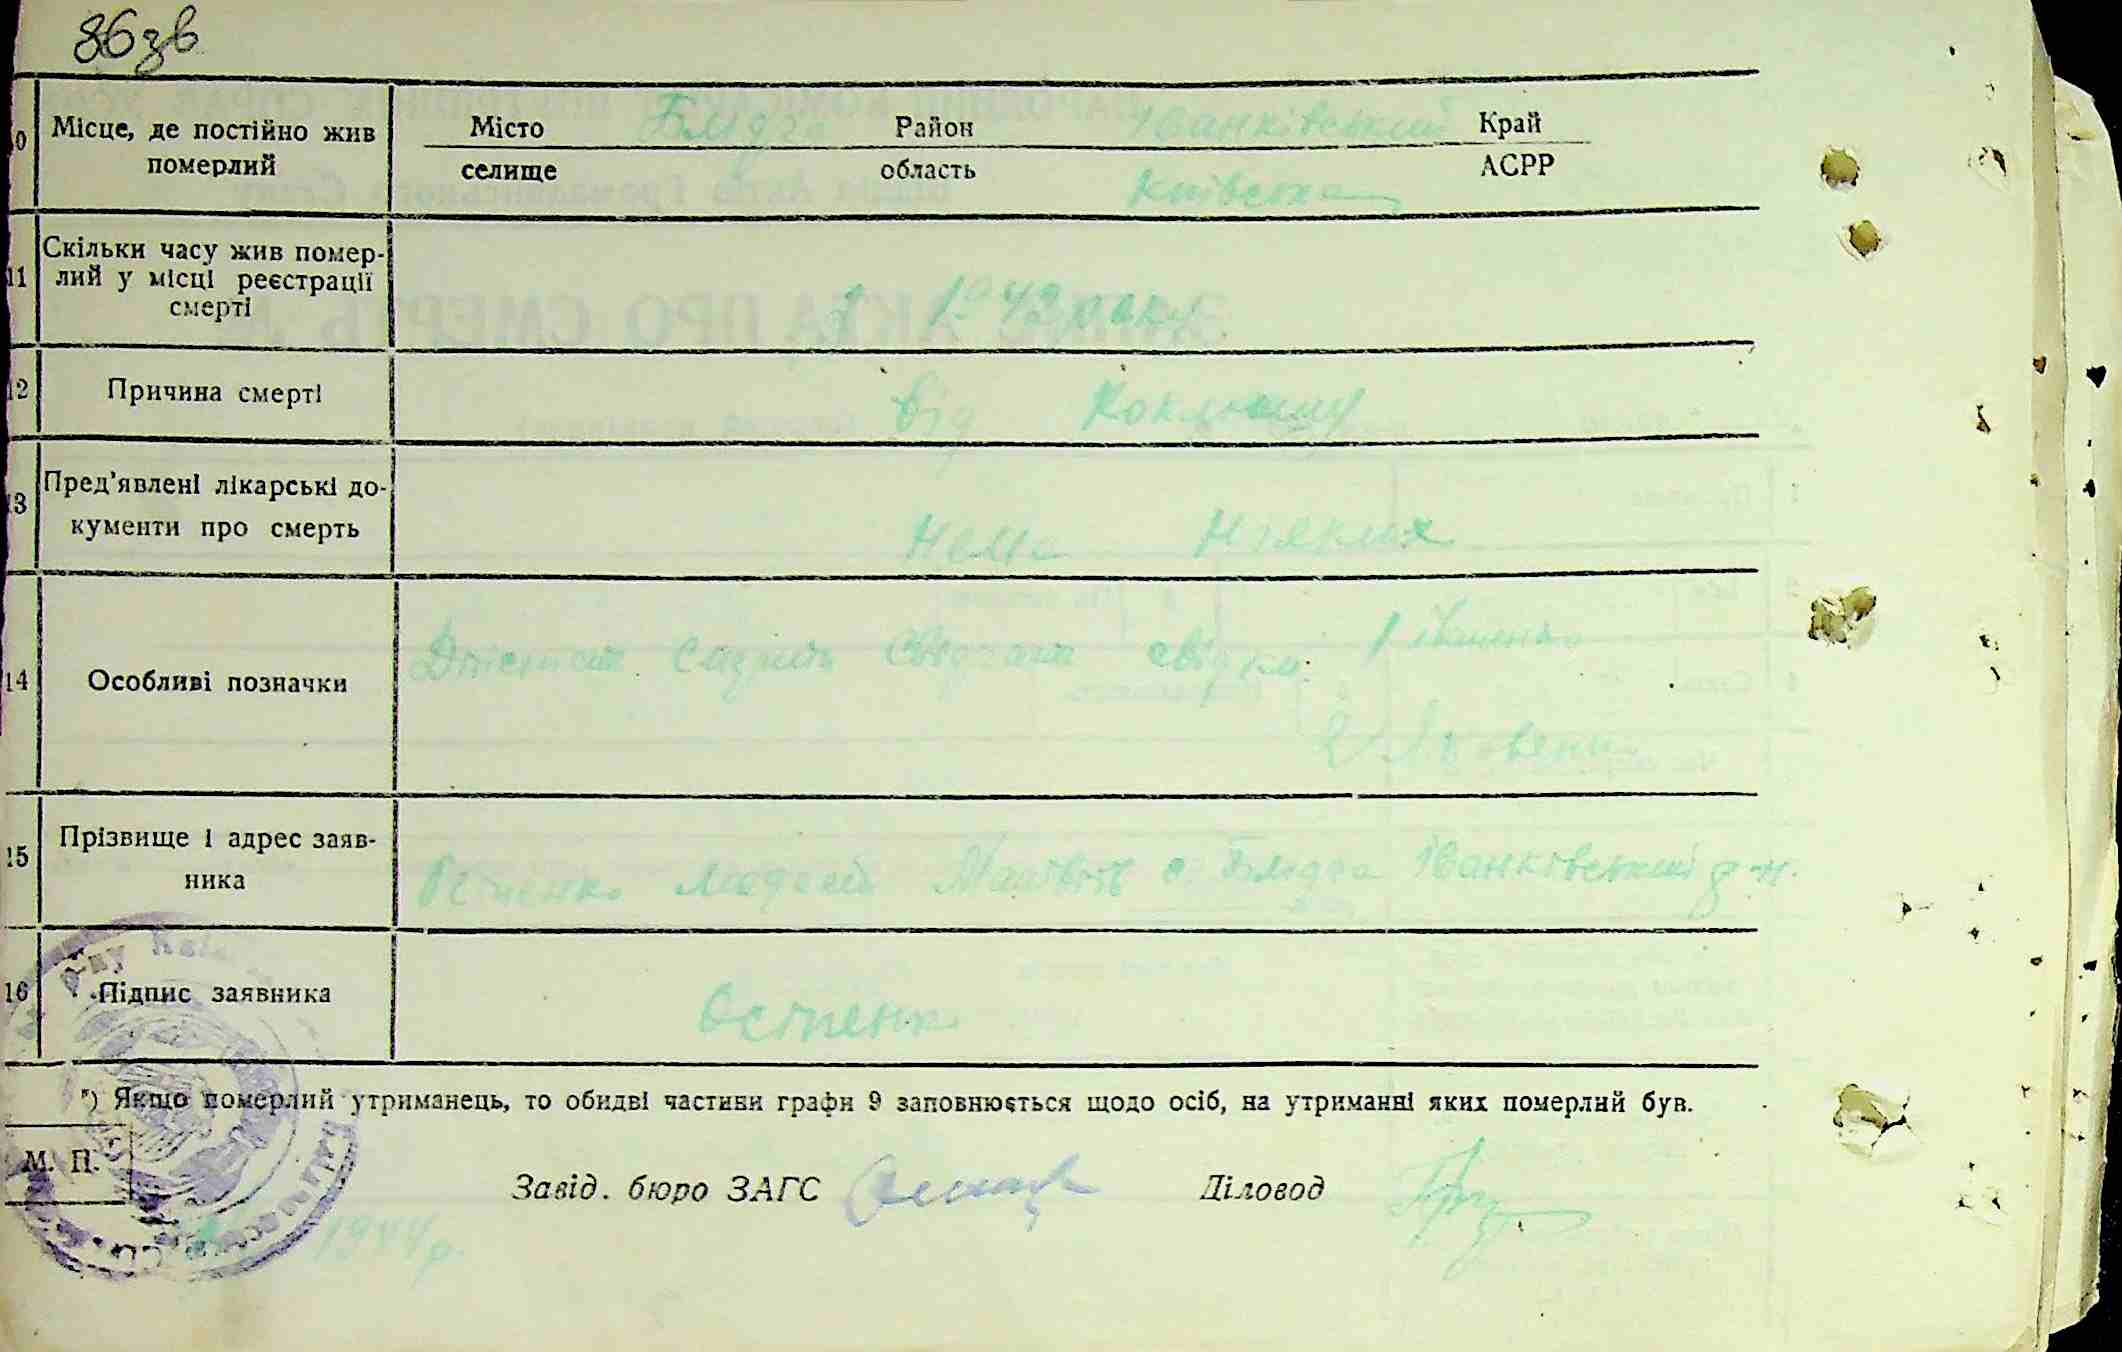 86зв
10 Місце, де постійно жив померлий
Місто Блідча Район Іванківський Край
селище область Київська АСРР
11 Скільки часу жив помер-
лий у місці реєстрації
смерті
1942 року
12 Причина смерті від Коклюшу
13 Пред'явлені лікарські до-
кументи про смерть
нема ніяких
14 Особливі позначки
смерть свідки: 1
2
15 Прізвище і адрес заяв-
ника
Осіпенко с Блідча Іванківський р-н.
16 Підпис заявника Осіпенко
*) Якщо померлий утриманець, то обидві частини графи 9 заповнюється щодо осіб, на утриманні яких померлий був.
М. П.
Завід. бюро ЗАГС Діловод
1944 р.